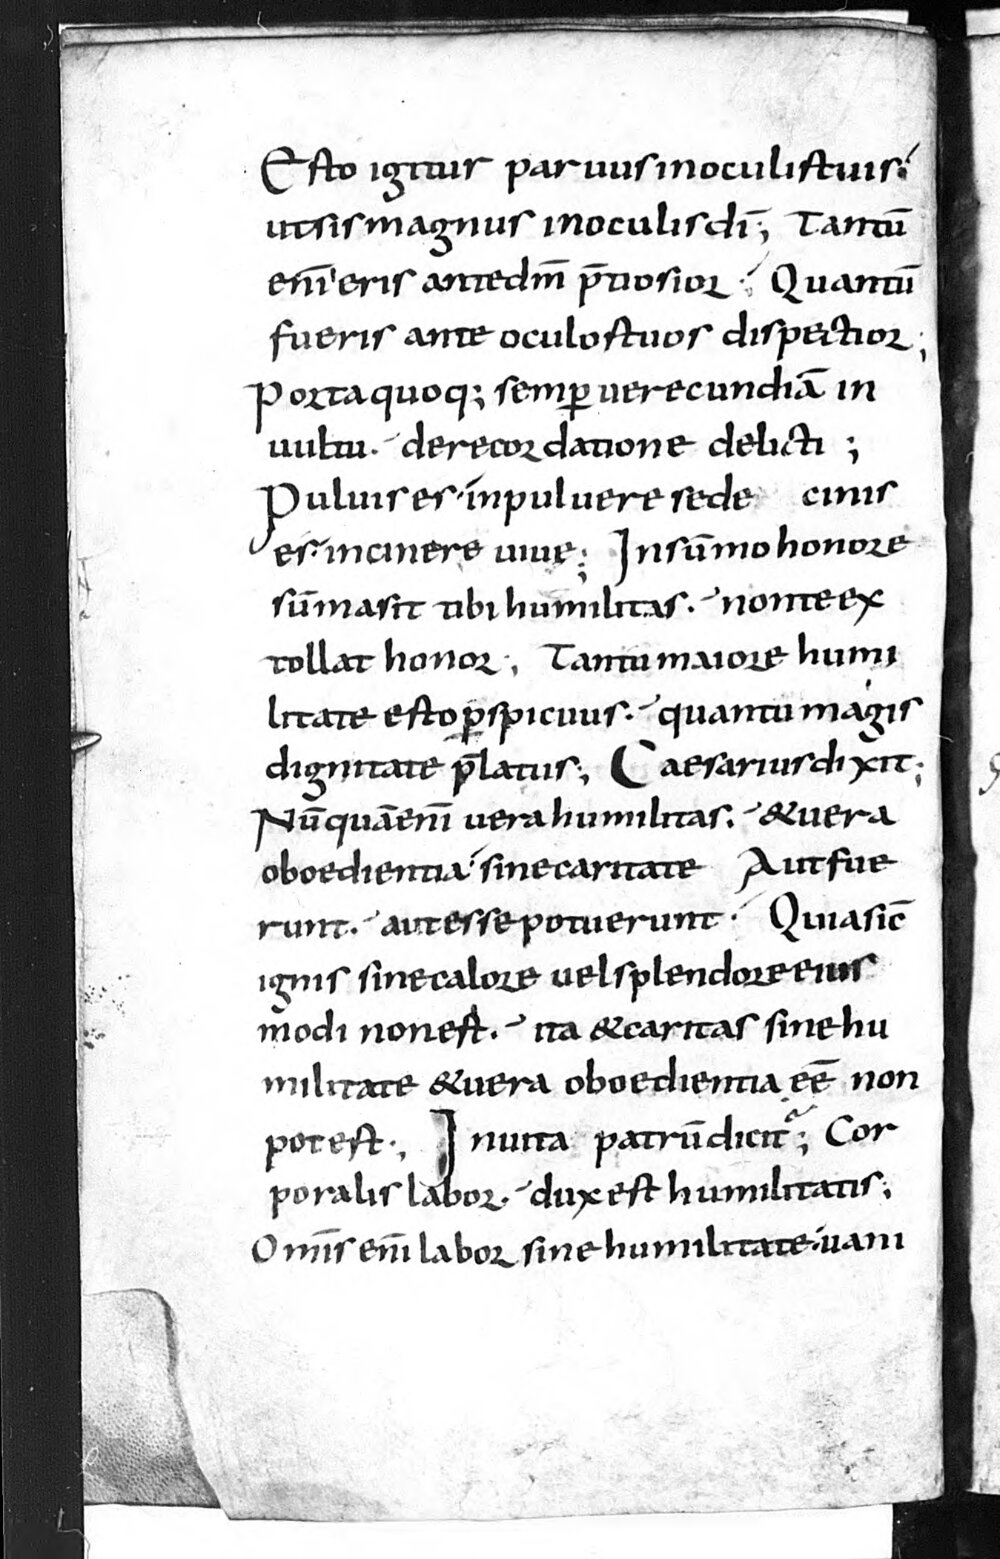 Esto igitur paruus inoculistuis;
utsis magnus inoculis dī; Tantū
enī eris antedm̄ p̄tiosior; Quantū
fueris ante oculostuos dispectior;
Porta quoq; semꝑ uerecundiā in
uultu. derecordatione delicti;
Puluis es. inpuluere sede cinis
es. incinere uiue; Insūmo honore
sūmasit tibi humilitas. nonte ex
tollat honor; Tantu maiore humi
litate esto ꝑspicuus. quantu magis
dignitate p̄latus; Caesarius dixit;
Nūquā enī uera humilitas. & uera
oboedientia sine caritate Aut fue
runt. aut esse potuerunt. Quia sic̄
ignis sine calore uel splendore eius
modi non est. ita & caritas sine hu
militate & uera oboedientia eē non
potest; Inuita patrū dicit; Cor
poralis labor. dux est humilitatis;
Omīs enī labor sine humilitate. uani